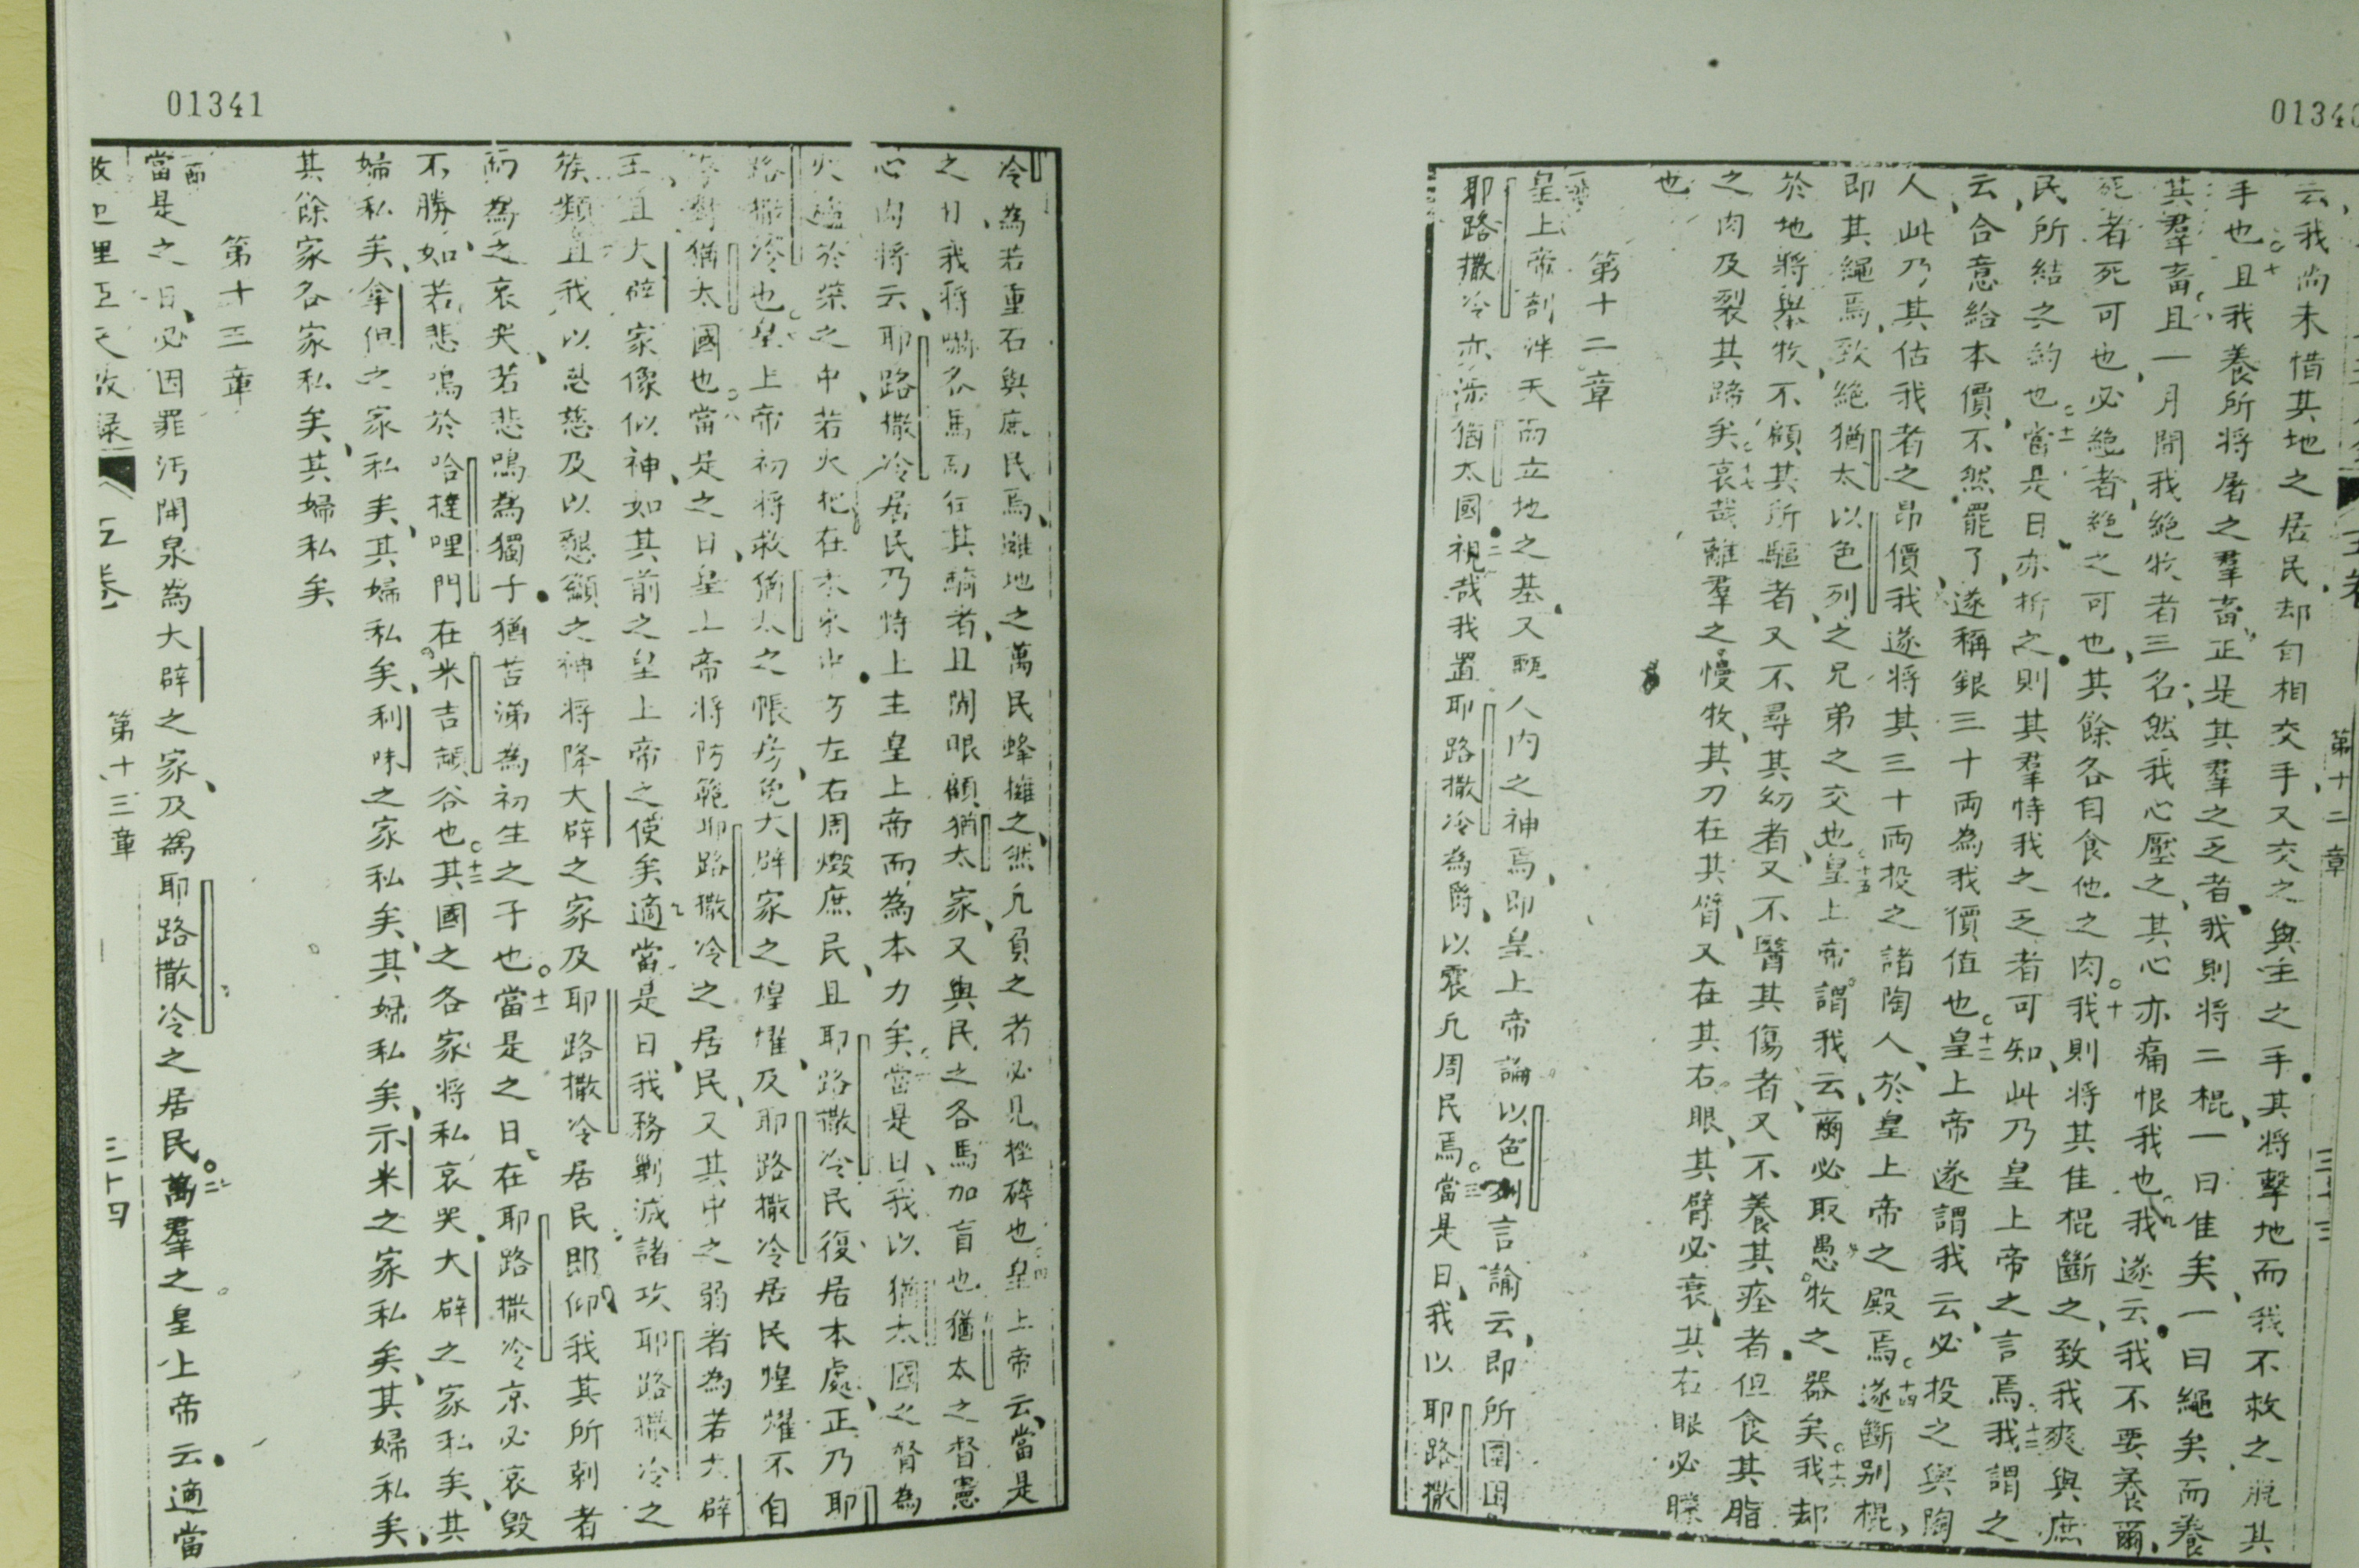 01340
云我尚未惜其地之居民却自相交手又交之與主之手其將擊地而我不救之脫其
手也。十且我養所將屠之羣畜正是其羣之乏者我則將二棍一曰佳矣一曰繩矣而養
其羣畜且一月間我絕牧者三名然我心壓之其心亦痛恨我也九我遂云我不要養爾
死者死可也必絕者絕之可也其餘各自食他之肉。十我則將其佳棍斷之致我爽與庶
民所結之約也。十一當是日亦折之則其羣恃我之乏者可知此乃皇上帝之言焉。十二我謂之
云合意給本價不然罷了遂稱銀三十両為我價值也。十三皇上帝遂謂我云必投之與陶
人此乃其估我者之昂價我遂將其三十両投之諸陶人於皇上帝之殿焉。十四遂斷別棍
即其繩焉致絕猶太以色列之兄弟之交也。十五皇上帝謂我云爾必取愚牧之器矣。十六我却
於地將舉牧不顧其所驅者又不尋其幼者又不醫其傷者又不養其痊者但食其脂
之肉及裂其蹄矣。十七哀哉離羣之慢牧其刀在其臂又在其右眼其臂必衰其右眼必矇
也
第十二章
皇上帝剖泮天而立地之基又甄人內之神焉即皇上帝論以色列言諭云即所圍困
耶路撒冷亦涉猶太國。二視哉我置耶路撒冷為爵以震凡周民焉。三當是日我以耶路撒
第十二章
01341
冷為若重石與庶民焉雖地之萬民蜂擁之然凡負之者必見挫碎也。四皇上帝云當是
之日我將嚇各馬而狂其騎者且開眼顧猶太家又與民之各馬加盲也猶太之督憲
心內將云耶路撒冷居民乃恃上主皇上帝而為本力矣當是日我以猶太國之督為
火爐於柴之中若火把在禾束中方左右周燬庶民且耶路撒冷民復居本處正乃耶
路撒冷也皇上帝初將救猶太之帳房免大辟家之煌燿及耶路撒冷居民煌燿不自
猶太國也。八當是之日皇上帝將防範耶路撒冷之居民又其中之弱者為若大辟
王且大辟家像似神如其前之皇上帝之使矣九適當是日我務剿滅諸攻耶路撒冷之
族類且我以恩慈及以懇籲之神將降大辟之家及耶路撒冷居民即仰我其所刺者
而為之哀哭若悲鳴為獨子猶苦涕為初生之子也。十一當是之日在耶路撒冷京必哀毀
不勝如若悲鳴於哈撻哩門在米吉頓谷也。十二其國之各家將私哀哭大辟之家私矣其
婦私矣拿但之家私矣其婦私矣利味之家私矣其婦私矣示米之家私矣其婦私矣
其餘家各家私矣其婦私矣
第十三章
當是之日必因罪污開泉為大辟之家及為耶路撒冷之居民。二萬羣之皇上帝云適當
五卷 第十三章 三十四